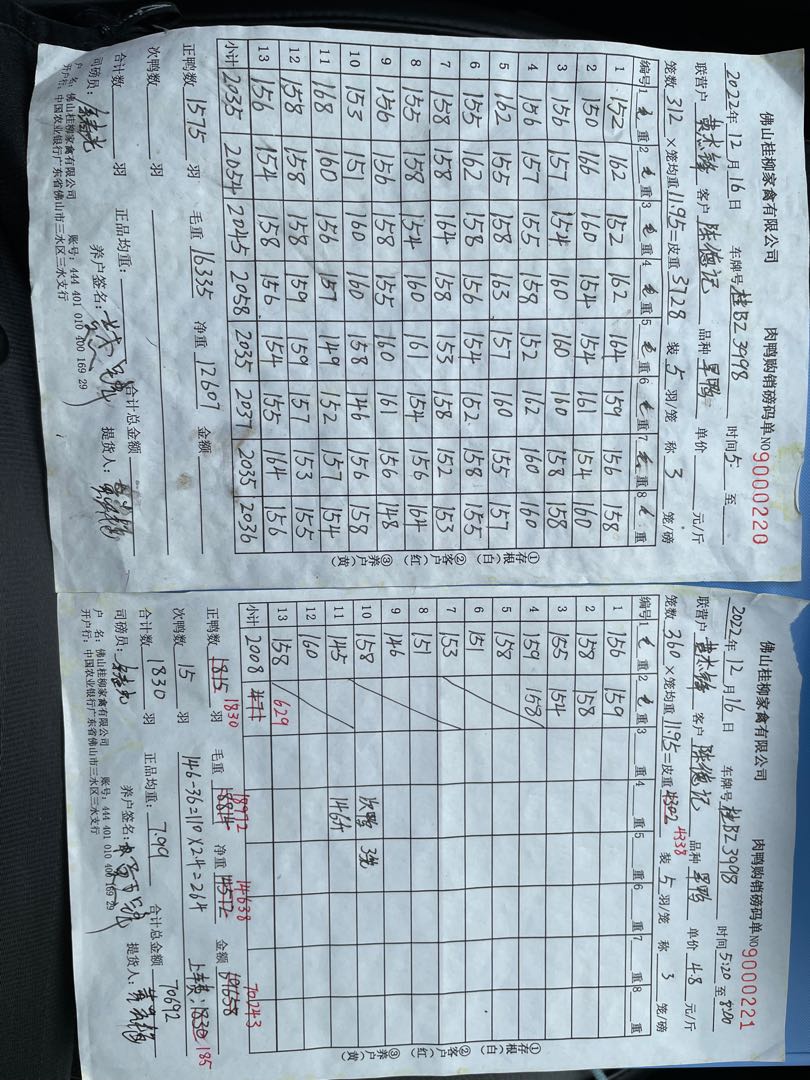 佛山桂柳家禽有限公司 肉鸭购销磅码单 NO 9000220
2022年12月16日 车牌号 桂BZ3998 时间 5: 至
联营户 黄杰锋 客户 陈德记 品种 单价 元/斤
笼数 312 ×笼均重 11.95 =皮重 3728 装 5 羽/笼 称 3 笼/磅
编号 1 毛 重 2 毛 重 3 毛 重 4 毛 重 5 毛 重 6 毛 重 7 毛 重 8 毛 重
1 152 162 152 162 164 159 156 158
2 150 166 160 154 154 161 154 160
3 156 157 154 160 160 160 158 158
4 156 157 155 158 152 162 160 160
5 162 155 158 163 157 160 155 157
6 155 162 158 156 154 162 158 155
7 158 158 164 158 153 158 152 153
8 155 158 154 160 161 154 156 164
9 156 156 158 155 160 161 156 148
10 153 151 160 160 158 146 156 158
11 168 160 156 157 149 152 157 154
12 158 158 158 159 159 157 153 155
13 156 154 158 156 154 155 164 156
小计 2035 2054 2045 2058 2035 2037 2035 2036
正鸭数 1575 羽 毛重 16335 净重 12607 金额
次鸭数 羽
合计数 羽 正品均重: 合计总金额
司磅员: 养户签名: 提货人:
户 名: 佛山桂柳家禽有限公司 账号: 444 401 010 400 169 29
开户行: 中国农业银行广东省佛山市三水区三水支行
①存根(白) ②客户(红) ③养户(黄)
佛山桂柳家禽有限公司 肉鸭购销磅码单 NO 9000221
2022年12月16日 车牌号 桂BZ3998 时间 5:20 至 8:20
联营户 黄杰锋 客户 陈德记 品种 单价 4.8 元/斤
笼数 360 ×笼均重 11.95 =皮重 4302 4338 装 5 羽/笼 称 3 笼/磅
编号 1 毛 重 2 毛 重 3 重 4 重 5 重 6 重 7 重 8 重
1 156 159
2 158 158
3 155 154
4 159 158
5 158
6 151
7 153
8 151
9 146
10 158 次鸭 3笼
11 145 146斤
12 160
13 158 629
小计 2008 471
正鸭数 1815 1830 羽 毛重 18814 18972 净重 14512 14638 金额 69658 70243
次鸭数 15 羽 146-36=110×2.4=264 上车费: 1830 185
合计数 1830 羽 正品均重: 7.99 合计总金额 70692
司磅员: 养户签名: 提货人:
户 名: 佛山桂柳家禽有限公司 账号: 444 401 010 400 169 29
开户行: 中国农业银行广东省佛山市三水区三水支行
①存根(白) ②客户(红) ③养户(黄)